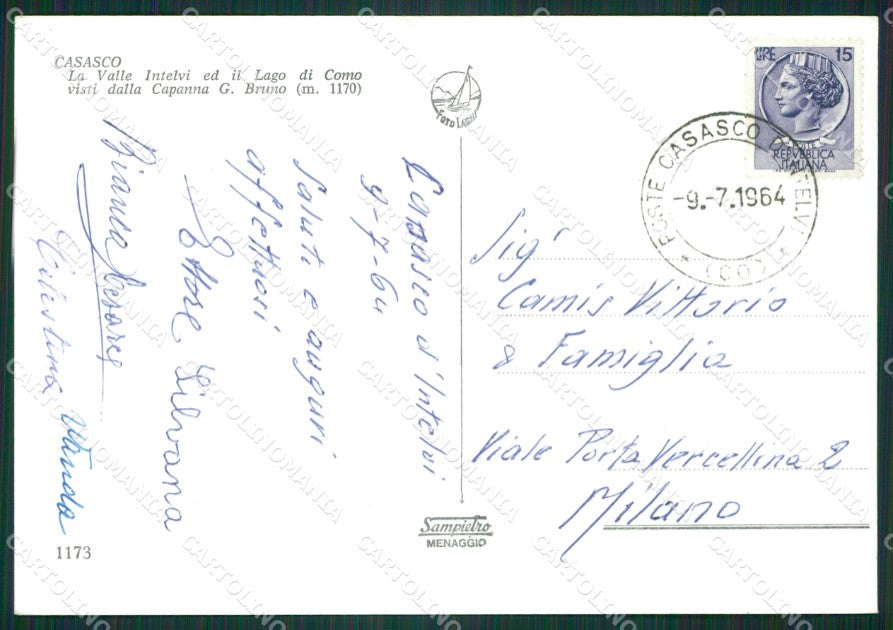 CASASCO
La Valle Intelvi ed il Lago di Como
visti dalla Capanna G. Bruno (m. 1170)
FOTO LAGHI
LIRE 15
POSTE
REPVBBLICA
ITALIANA
POSTE CASASCO D'INTELVI
-9.-7.1964
(CO)
Casasco d'Intelvi
9-7-64
Saluti e auguri
affettuosi
Ettore Silvana
Bianca Cesare
Celestina Wanda
Sig'
Camis Vittorio
& Famiglia
Viale Porta Vercellina 2
Milano
Sampietro
MENAGGIO
1173
CARTOLINOMANIA